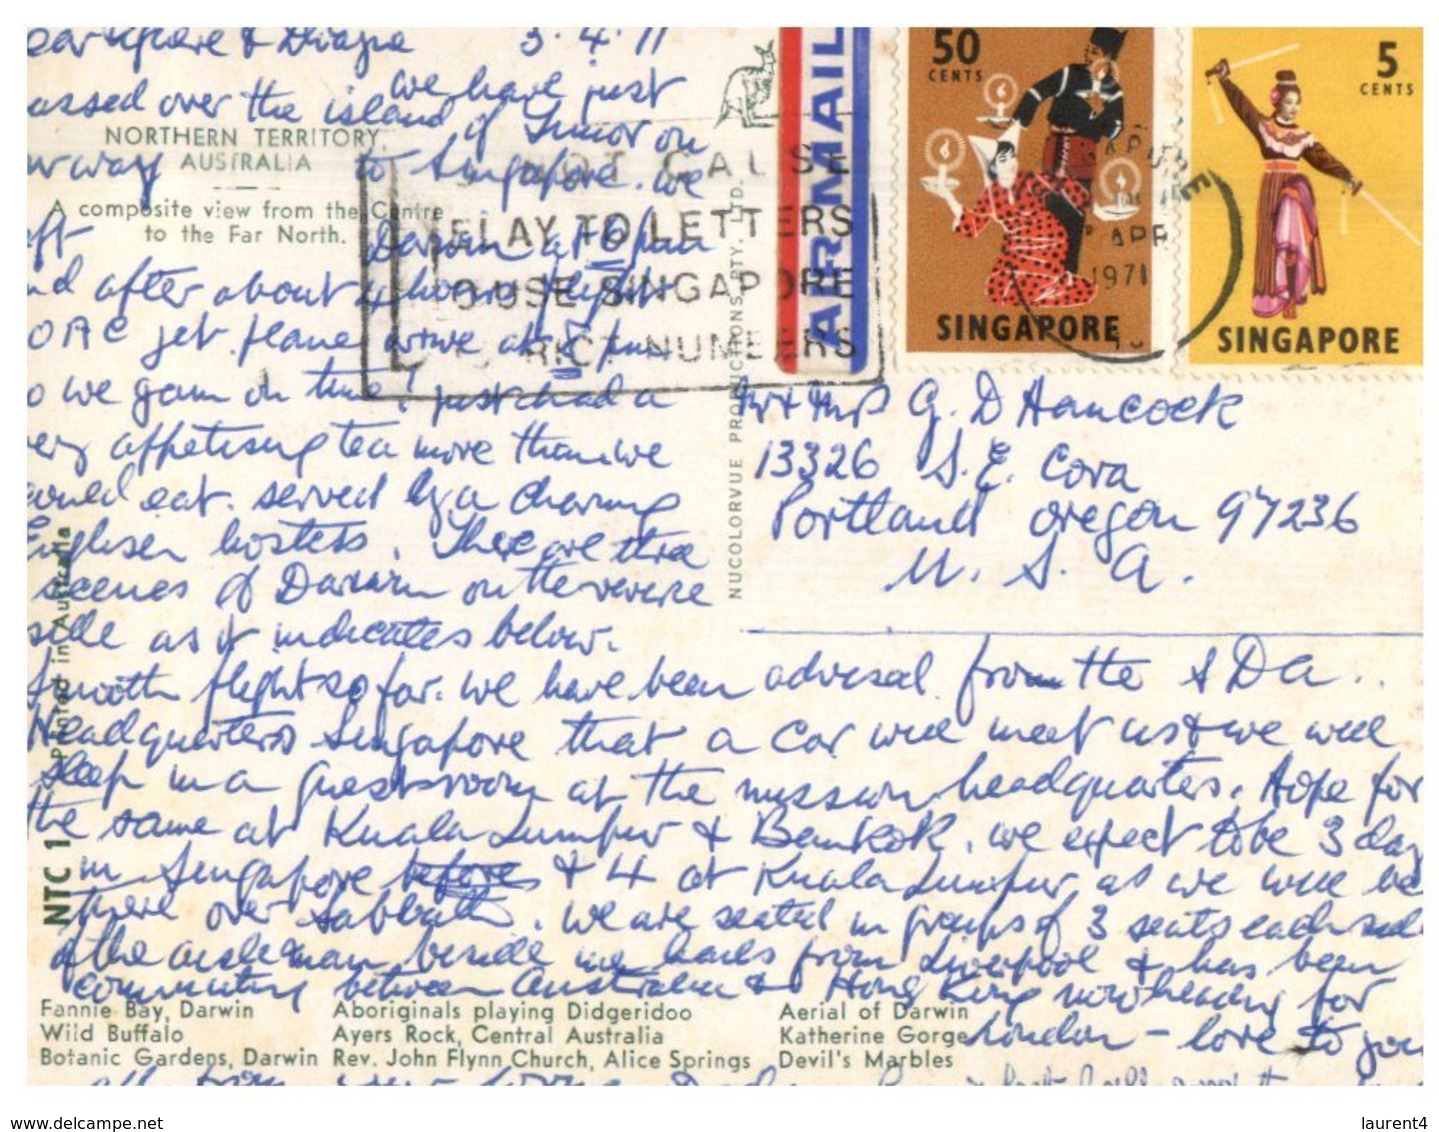 3.4.71
we have just
assed over the island of Timor on
NORTHERN TERRITORY,
AUSTRALIA
way to Singapore. We
A composite view from the Centre
to the Far North.
eft Darwin at 6 pm
nd after about 4 hours flight
OAC jet plane arrive at 8 pm
o we gain on time! just had a
ery appetising tea more than we
could eat. served by a charming
English hostess. There are three
scenes of Darwin on the reverse
side as it indicates below.
Smooth flight so far. We have been advised from the SDA..
Headquarters Singapore that a car will meet us & we will
sleep in a guestroom at the mission headquarters. Hope for
the same at Kuala Lumpur & Bankok. we expect to be 3 day
in Singapore before & 4 at Kuala Lumpur, as we will be
there over Sabbath. We are seated in groups of 3 seats each side
of the aisle man beside me hails from Liverpool & has been
commuting between Australia & Hong Kong now heading for
London - love to you
AIR MAIL
50
CENTS
SINGAPORE
5
CENTS
SINGAPORE
NOT CAUSE
DELAY TO LETTERS
USE SINGAPORE
RICT NUMBERS
APR
1971
Mr & Mrs G. D Hancock
13326 S.E. Cora
Portland Oregon 97236
U. S. A.
NUCOLORVUE PRODUCTIONS PTY. LTD.
Printed in Australia
NTC 1
Fannie Bay, Darwin
Wild Buffalo
Botanic Gardens, Darwin
Aboriginals playing Didgeridoo
Ayers Rock, Central Australia
Rev. John Flynn Church, Alice Springs
Aerial of Darwin
Katherine Gorge
Devil's Marbles
www.delcampe.net
laurent4